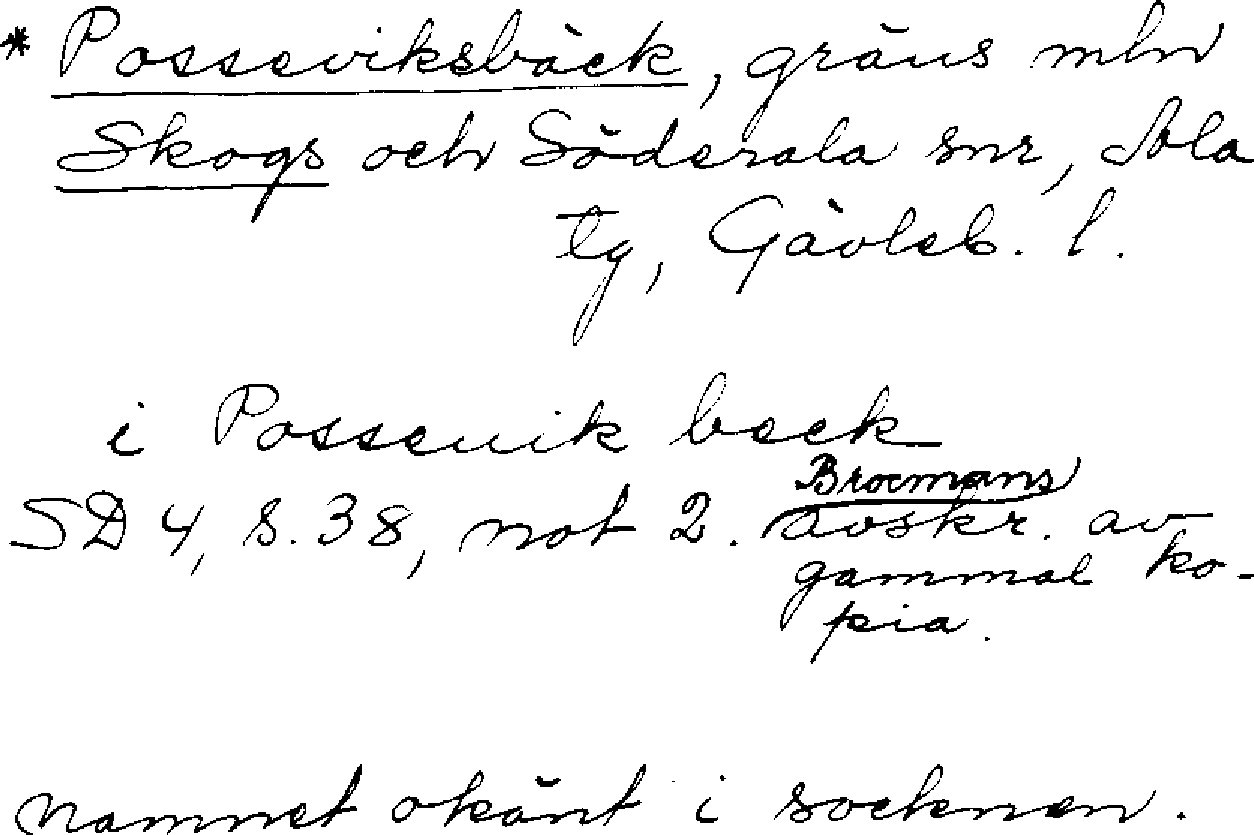 * Posseviksbäck, gräns mln
Skogs och Söderala snr, Ala
tg, Gävleb. l.
i Posseuik beck
SD 4, s. 38, not 2. Brocmans avskr. av
gammal ko-
pia.
namnet okänt i socknen.